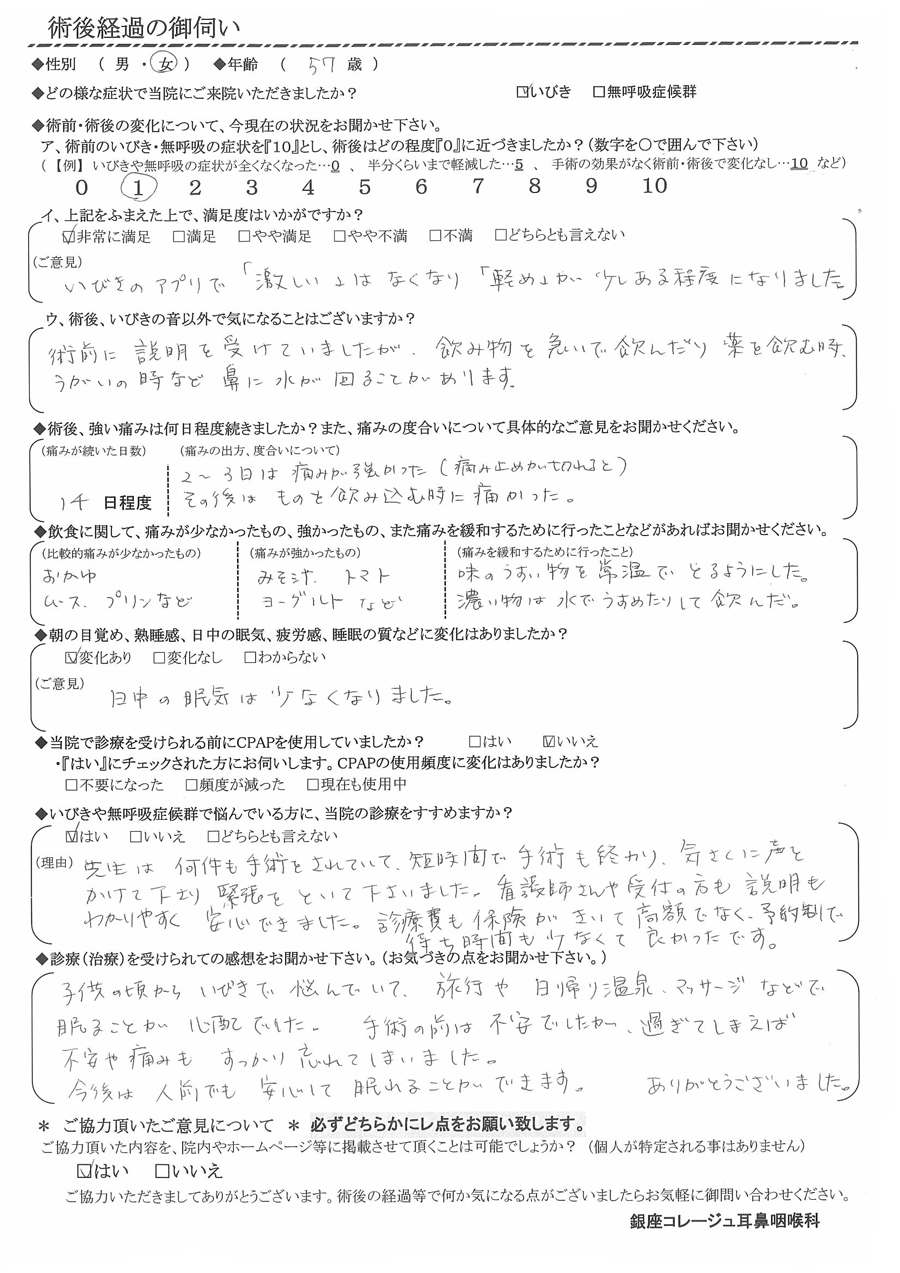 術後経過の御伺い
◆性別 ( 男 ・ 女 ) ◆年齢 ( 57 歳 )
◆どの様な症状で当院にご来院いただきましたか? ☑いびき □無呼吸症候群
◆術前・術後の変化について、今現在の状況をお聞かせ下さい。
ア、術前のいびき・無呼吸の症状を『10』とし、術後はどの程度『0』に近づきましたか?(数字を〇で囲んで下さい)
(【例】 いびきや無呼吸の症状が全くなくなった…0 、 半分くらいまで軽減した…5 、 手術の効果がなく術前・術後で変化なし…10 など)
0 1 2 3 4 5 6 7 8 9 10
イ、上記をふまえた上で、満足度はいかがですか?
☑非常に満足 □満足 □やや満足 □やや不満 □不満 □どちらとも言えない
(ご意見)
いびきのアプリで「激しい」はなくなり「軽め」が少しある程度になりました
ウ、術後、いびきの音以外で気になることはございますか?
術前に説明を受けていましたが、飲み物を急いで飲んだり薬を飲む時、
うがいの時など鼻に水が回ることがあります。
◆術後、強い痛みは何日程度続きましたか?また、痛みの度合いについて具体的なご意見をお聞かせください。
(痛みが続いた日数) (痛みの出方、度合いについて)
2〜3日は痛みが強かった(痛み止めが切れると)
14 日程度 その後はものを飲み込む時に痛かった。
◆飲食に関して、痛みが少なかったもの、強かったもの、また痛みを緩和するために行ったことなどがあればお聞かせください。
(比較的痛みが少なかったもの) (痛みが強かったもの) (痛みを緩和するために行ったこと)
おかゆ みそ汁、トマト 味のうすい物を常温でとるようにした。
ムース、プリンなど ヨーグルトなど 濃い物は水でうすめたりして飲んだ。
◆朝の目覚め、熟睡感、日中の眠気、疲労感、睡眠の質などに変化はありましたか?
☑変化あり □変化なし □わからない
(ご意見)
日中の眠気は少なくなりました。
◆当院で診療を受けられる前にCPAPを使用していましたか? □はい ☑いいえ
・『はい』にチェックされた方にお伺いします。CPAPの使用頻度に変化はありましたか?
□不要になった □頻度が減った □現在も使用中
◆いびきや無呼吸症候群で悩んでいる方に、当院の診療をすすめますか?
☑はい □いいえ □どちらとも言えない
(理由) 先生は何件も手術をされていて、短時間で手術も終わり、気さくに声を
かけて下さり緊張をといて下さいました。看護師さんや受付の方も説明も
わかりやすく安心できました。診療費も保険がきいて高額でなく、予約制で
待ち時間も少なくて良かったです。
◆診療(治療)を受けられての感想をお聞かせ下さい。(お気づきの点をお聞かせ下さい。)
子供の頃からいびきで悩んでいて、旅行や日帰り温泉、マッサージなどで
眠ることが心配でした。手術の前は不安でしたが、過ぎてしまえば
不安や痛みもすっかり忘れてしまいました。
今後は人前でも安心して眠れることができます。 ありがとうございました。
* ご協力頂いたご意見について * 必ずどちらかにレ点をお願い致します。
ご協力頂いた内容を、院内やホームページ等に掲載させて頂くことは可能でしょうか? (個人が特定される事はありません)
☑はい □いいえ
ご協力いただきましてありがとうございます。術後の経過等で何か気になる点がございましたらお気軽に御問い合わせください。
銀座コレージュ耳鼻咽喉科